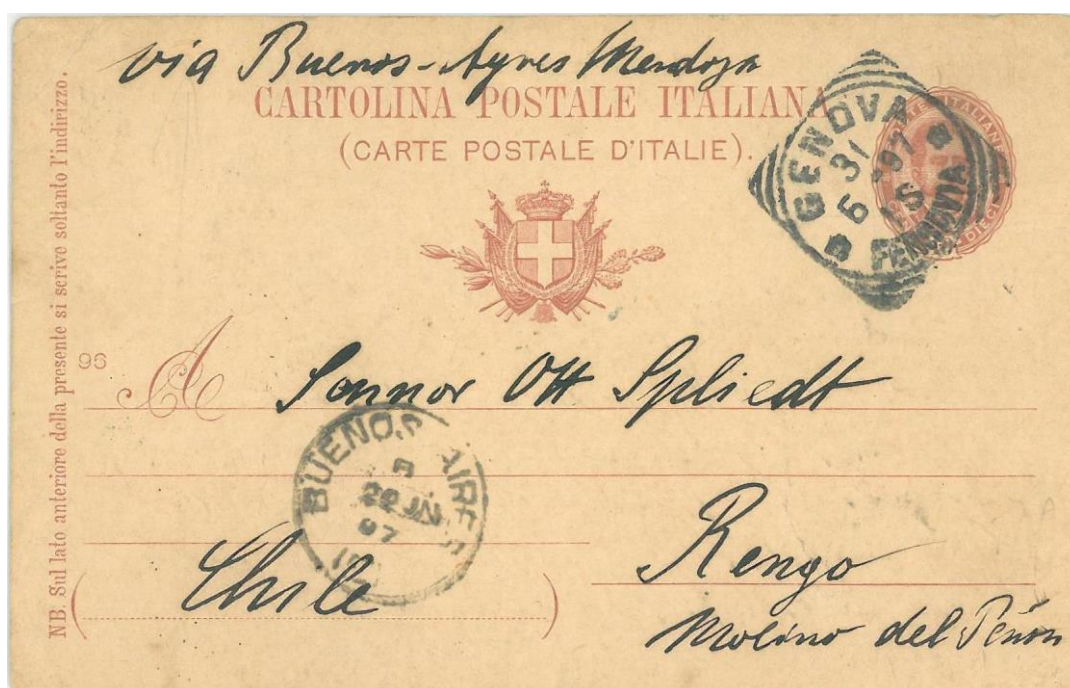 via Buenos-Ayres Mendoza
CARTOLINA POSTALE ITALIANA
(CARTE POSTALE D'ITALIE).
GENOVA
31
6 97
FERROVIA
NB. Sul lato anteriore della presente si scrive soltanto l'indirizzo.
96
A Sennor Ott Spliedt
BUENOS AIRES
29 JN
97
Rengo
(Chile)
Molino del Peñon